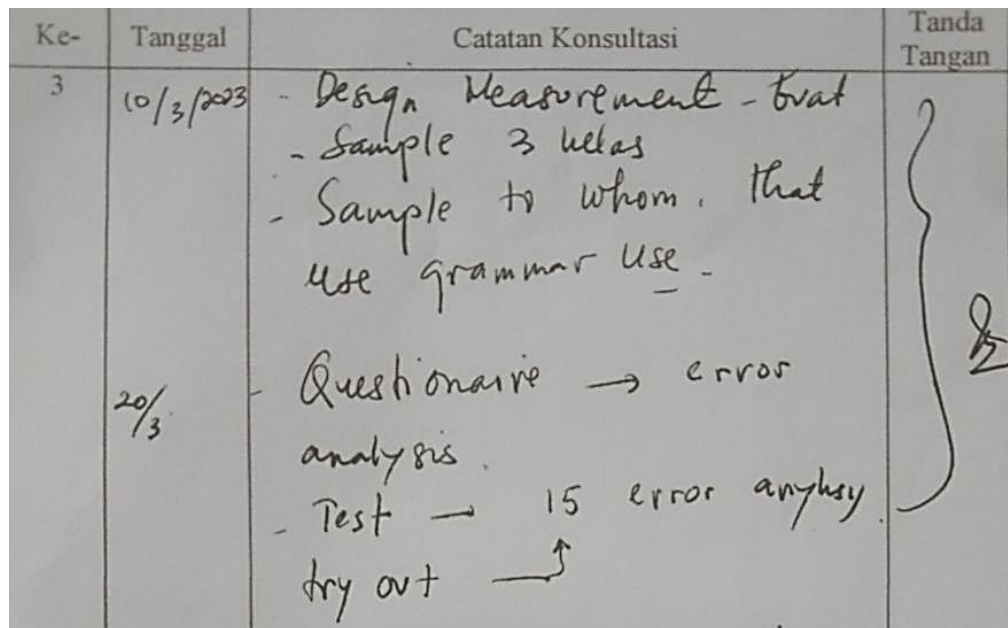 Ke- Tanggal Catatan Konsultasi Tanda Tangan
3 10/3/2023 - Design Measurement -
- Sample 3 kelas
- Sample to whom. that
use grammar use -
20/3. - Questionaire → error
analysis.
- Test — 15 error
try out